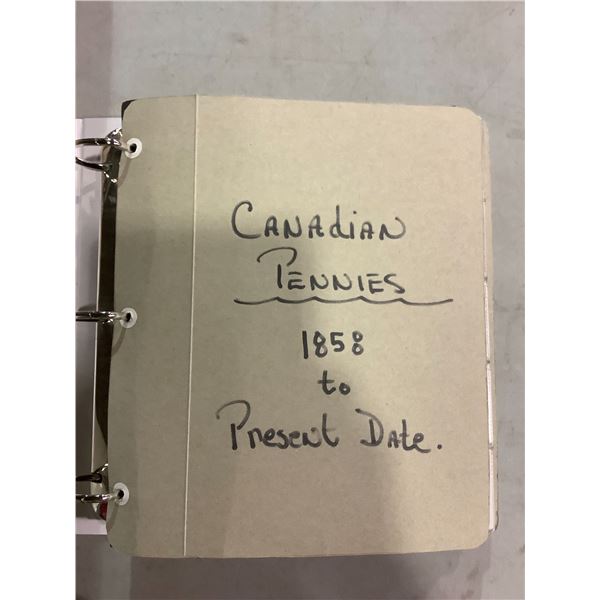 CANAdiAN
PENNIES
1858
to
Present Date.